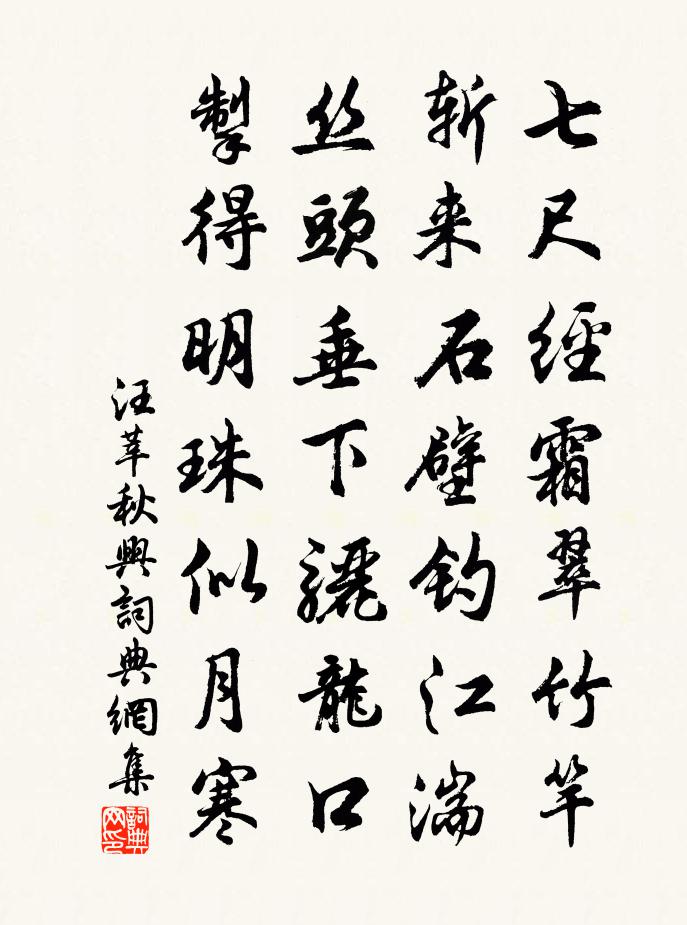 七尺經霜翠竹竿
斬来石壁釣江湍
丝頭垂下驪龍口
掣得明珠似月寒
汪莘秋興詞典網集
詞典网印